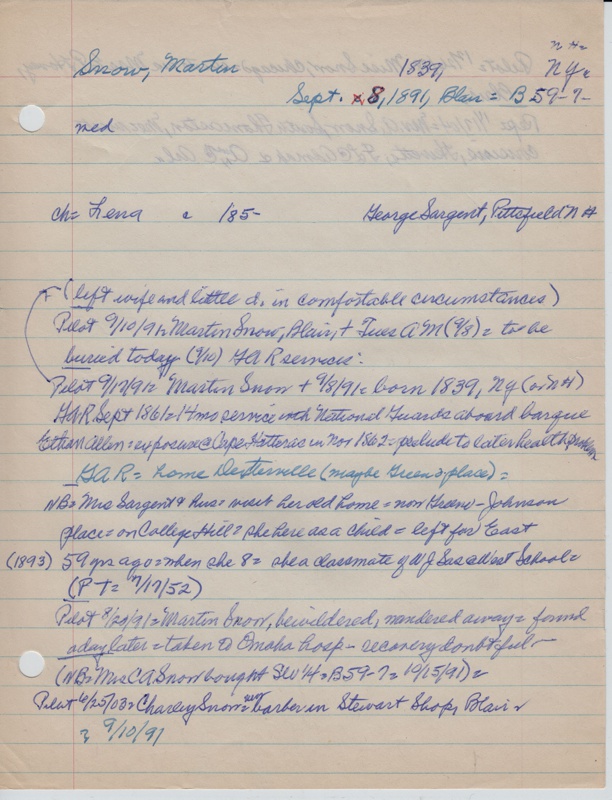 N H =
Snow, Martin 1839, NY =
Sept. 8, 1891, Blair = B 59-7-
med
ch = Lena c 185- George Sargent, Pittsfield N H
(left wife and little d. in comfortable circumstances)
Pilot 9/10/91 = Martin Snow, Blair, + Tues A M (9/8) = to be
buried today (9/10) GAR services.
Pilot 9/17/91 = Martin Snow + 9/8/91 = born 1839, NY (or NH)
GAR Sept 1861 = 14 mo service with National Guards aboard barque
Ethan Allen = exposure @ Cape Hatteras in Nov 1862 = prelude to later health problem
GAR = home Desterville (maybe Green's place) =
NB = Mrs Sargent & hus = visit her old home = now Green - Johnson
place = on College Hill = she here as a child = left for East
(1893) 59 yrs ago = when she 8 = she a classmate of N J Sas @ West School =
(P T = 7/17/52)
Pilot 8/20/91 = Martin Snow, bewildered, wandered away = found
a day later = taken to Omaha hosp - recovery doubtful -
(NB = Mrs C A Snow bought SW 1/4 = B 59-7 = 10/15/91) =
Pilot 6/25/03 = Charley Snow = new barber in Stewart Shop, Blair =
9/10/91